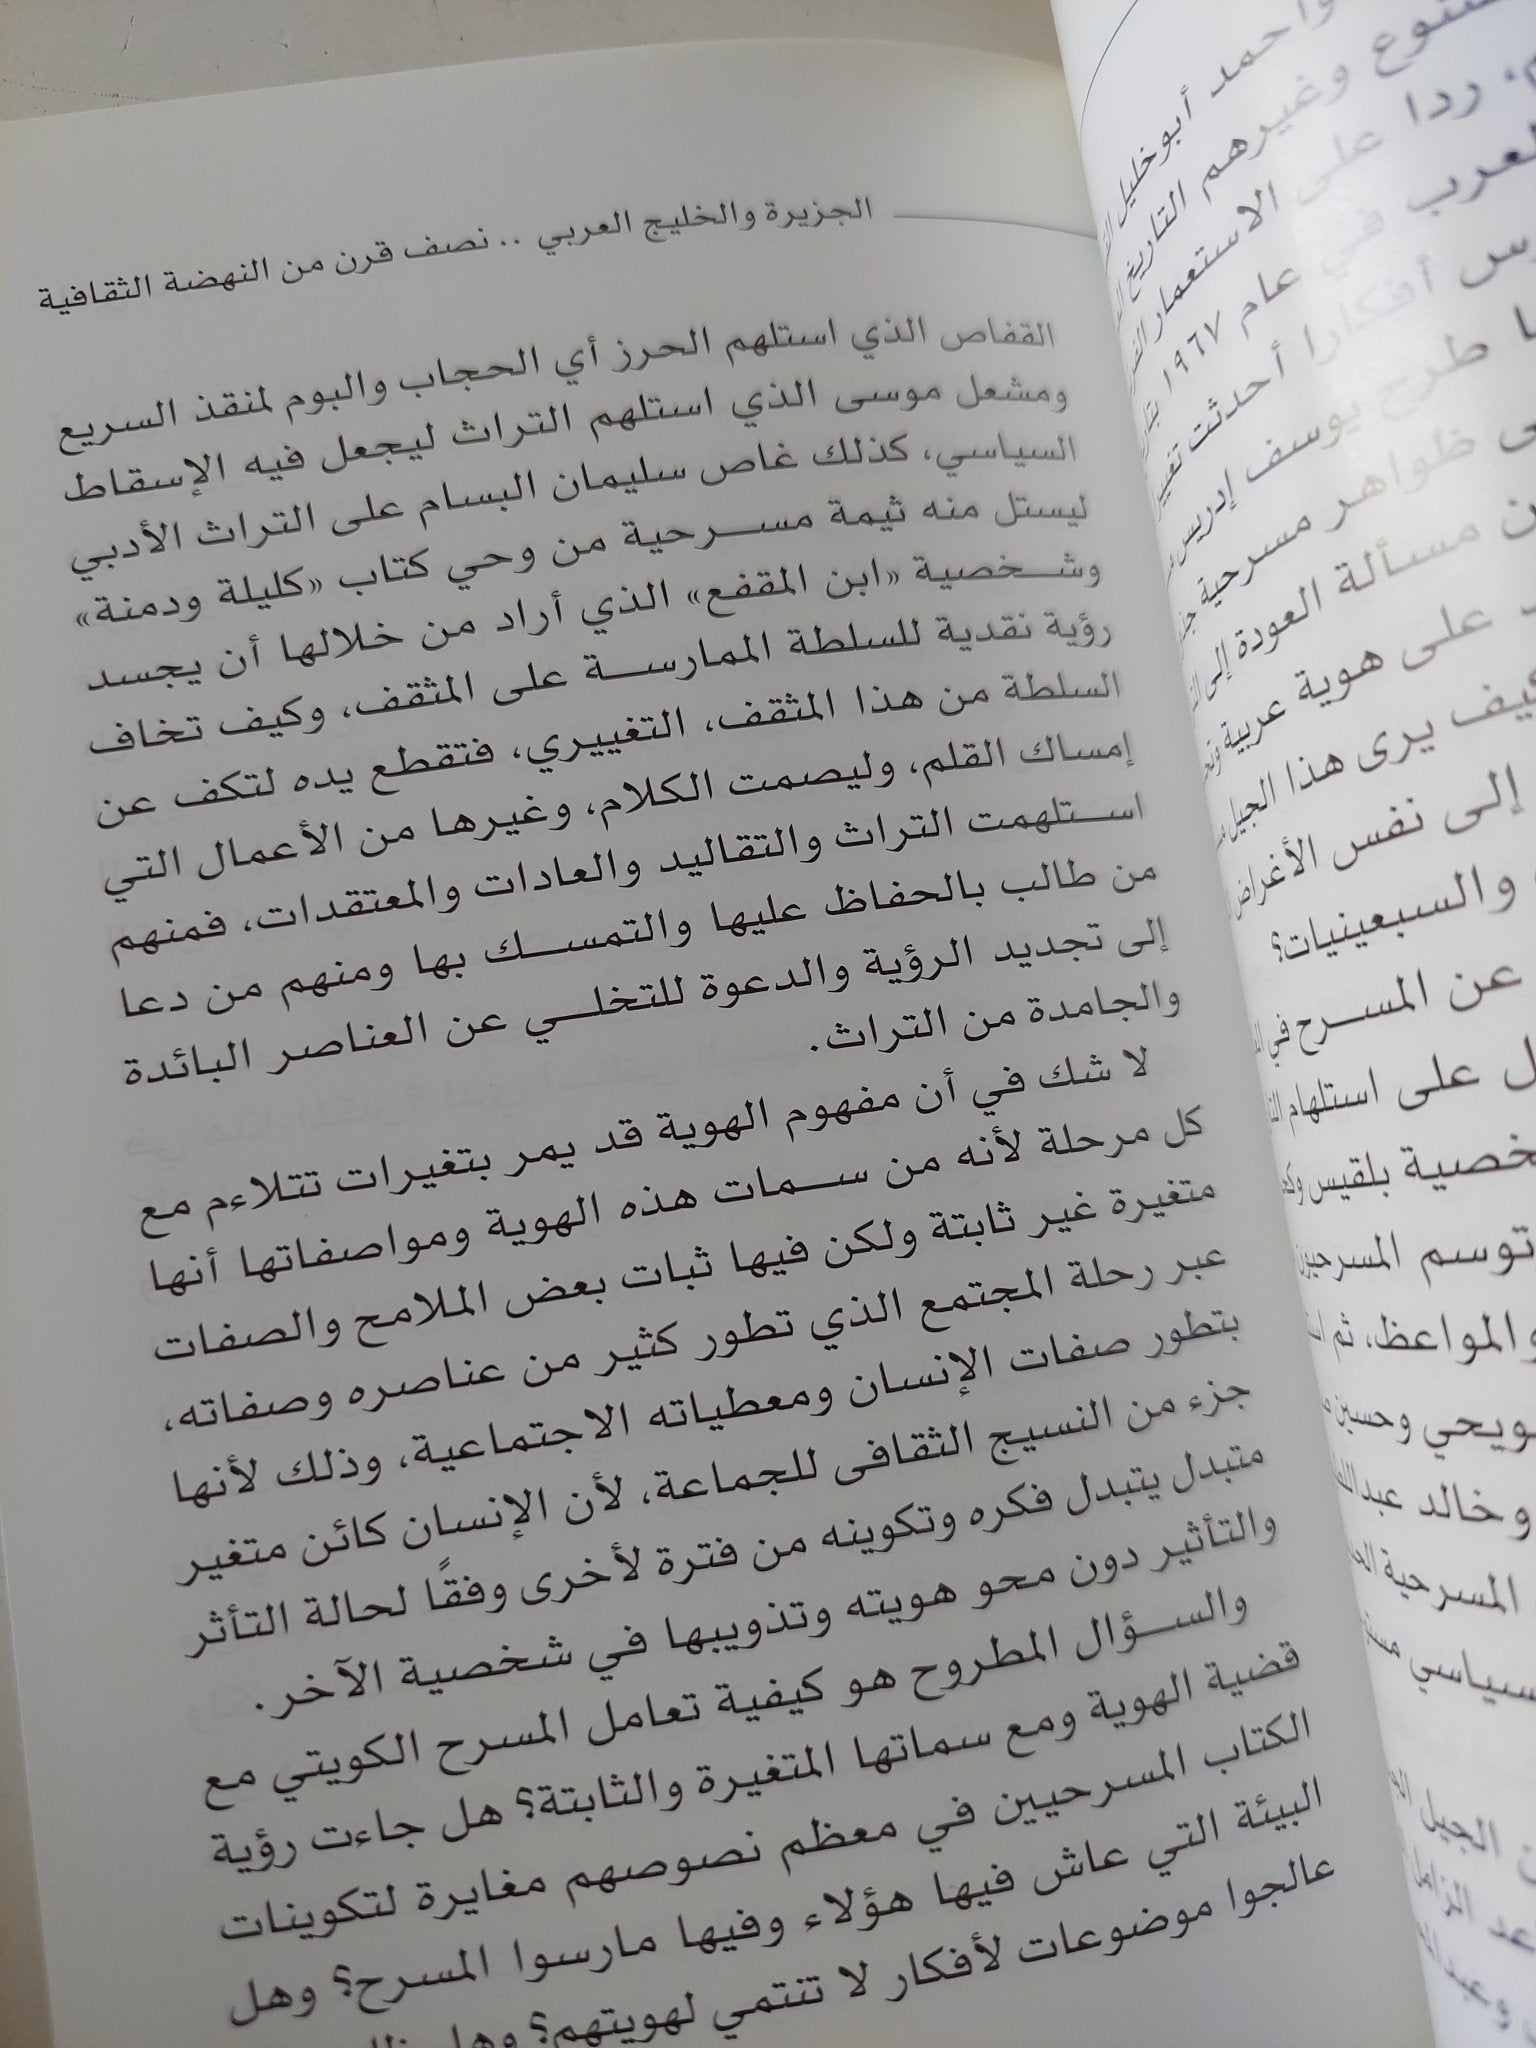 الجزيرة والخليج العربي .. نصف قرن من النهضة الثقافية
القفاص الذي استلهم الحرز أي الحجاب والبوم لمنقذ السريع
ومشعل موسى الذي استلهم التراث ليجعل فيه الإسقاط
السياسي، كذلك غاص سليمان البسام على التراث الأدبي
ليستل منه ثيمة مسرحية من وحي كتاب «كليلة ودمنة»
وشخصية «ابن المقفع» الذي أراد من خلالها أن يجسد
رؤية نقدية للسلطة الممارسة على المثقف، وكيف تخاف
السلطة من هذا المثقف، التغييري، فتقطع يده لتكف عن
إمساك القلم، وليصمت الكلام، وغيرها من الأعمال التي
استلهمت التراث والتقاليد والعادات والمعتقدات، فمنهم
من طالب بالحفاظ عليها والتمسك بها ومنهم من دعا
إلى تجديد الرؤية والدعوة للتخلي عن العناصر البائدة
والجامدة من التراث.
لا شك في أن مفهوم الهوية قد يمر بتغيرات تتلاءم مع
كل مرحلة لأنه من سمات هذه الهوية ومواصفاتها أنها
متغيرة غير ثابتة ولكن فيها ثبات بعض الملامح والصفات
عبر رحلة المجتمع الذي تطور كثير من عناصره وصفاته،
بتطور صفات الإنسان ومعطياته الاجتماعية، وذلك لأنها
جزء من النسيج الثقافى للجماعة، لأن الإنسان كائن متغير
متبدل يتبدل فكره وتكوينه من فترة لأخرى وفقًا لحالة التأثر
والتأثير دون محو هويته وتذويبها في شخصية الآخر.
والسؤال المطروح هو كيفية تعامل المسرح الكويتي مع
قضية الهوية ومع سماتها المتغيرة والثابتة؟ هل جاءت رؤية
الكتاب المسرحيين في معظم نصوصهم مغايرة لتكوينات
البيئة التي عاش فيها هؤلاء وفيها مارسوا المسرح؟ وهل
عالجوا موضوعات لأفكار لا تنتمي لهويتهم؟ وهل
واحمد أبوخليل
وغيرهم التاريخ
ردا على الاستعمار
العرب في عام ١٩٦٧
أفكارا أحدثت
طرح يوسف إدريس
ظواهر مسرحية
مسألة العودة إلى
على هوية عربية
كيف يرى هذا الجيل
إلى نفس الأغراض
والسبعينيات؟
عن المسرح في
على استلهام
بلقيس
توسم المسرحيون
والمواعظ، ثم
وحسين
وخالد
المسرحية
الجيل
الزامل